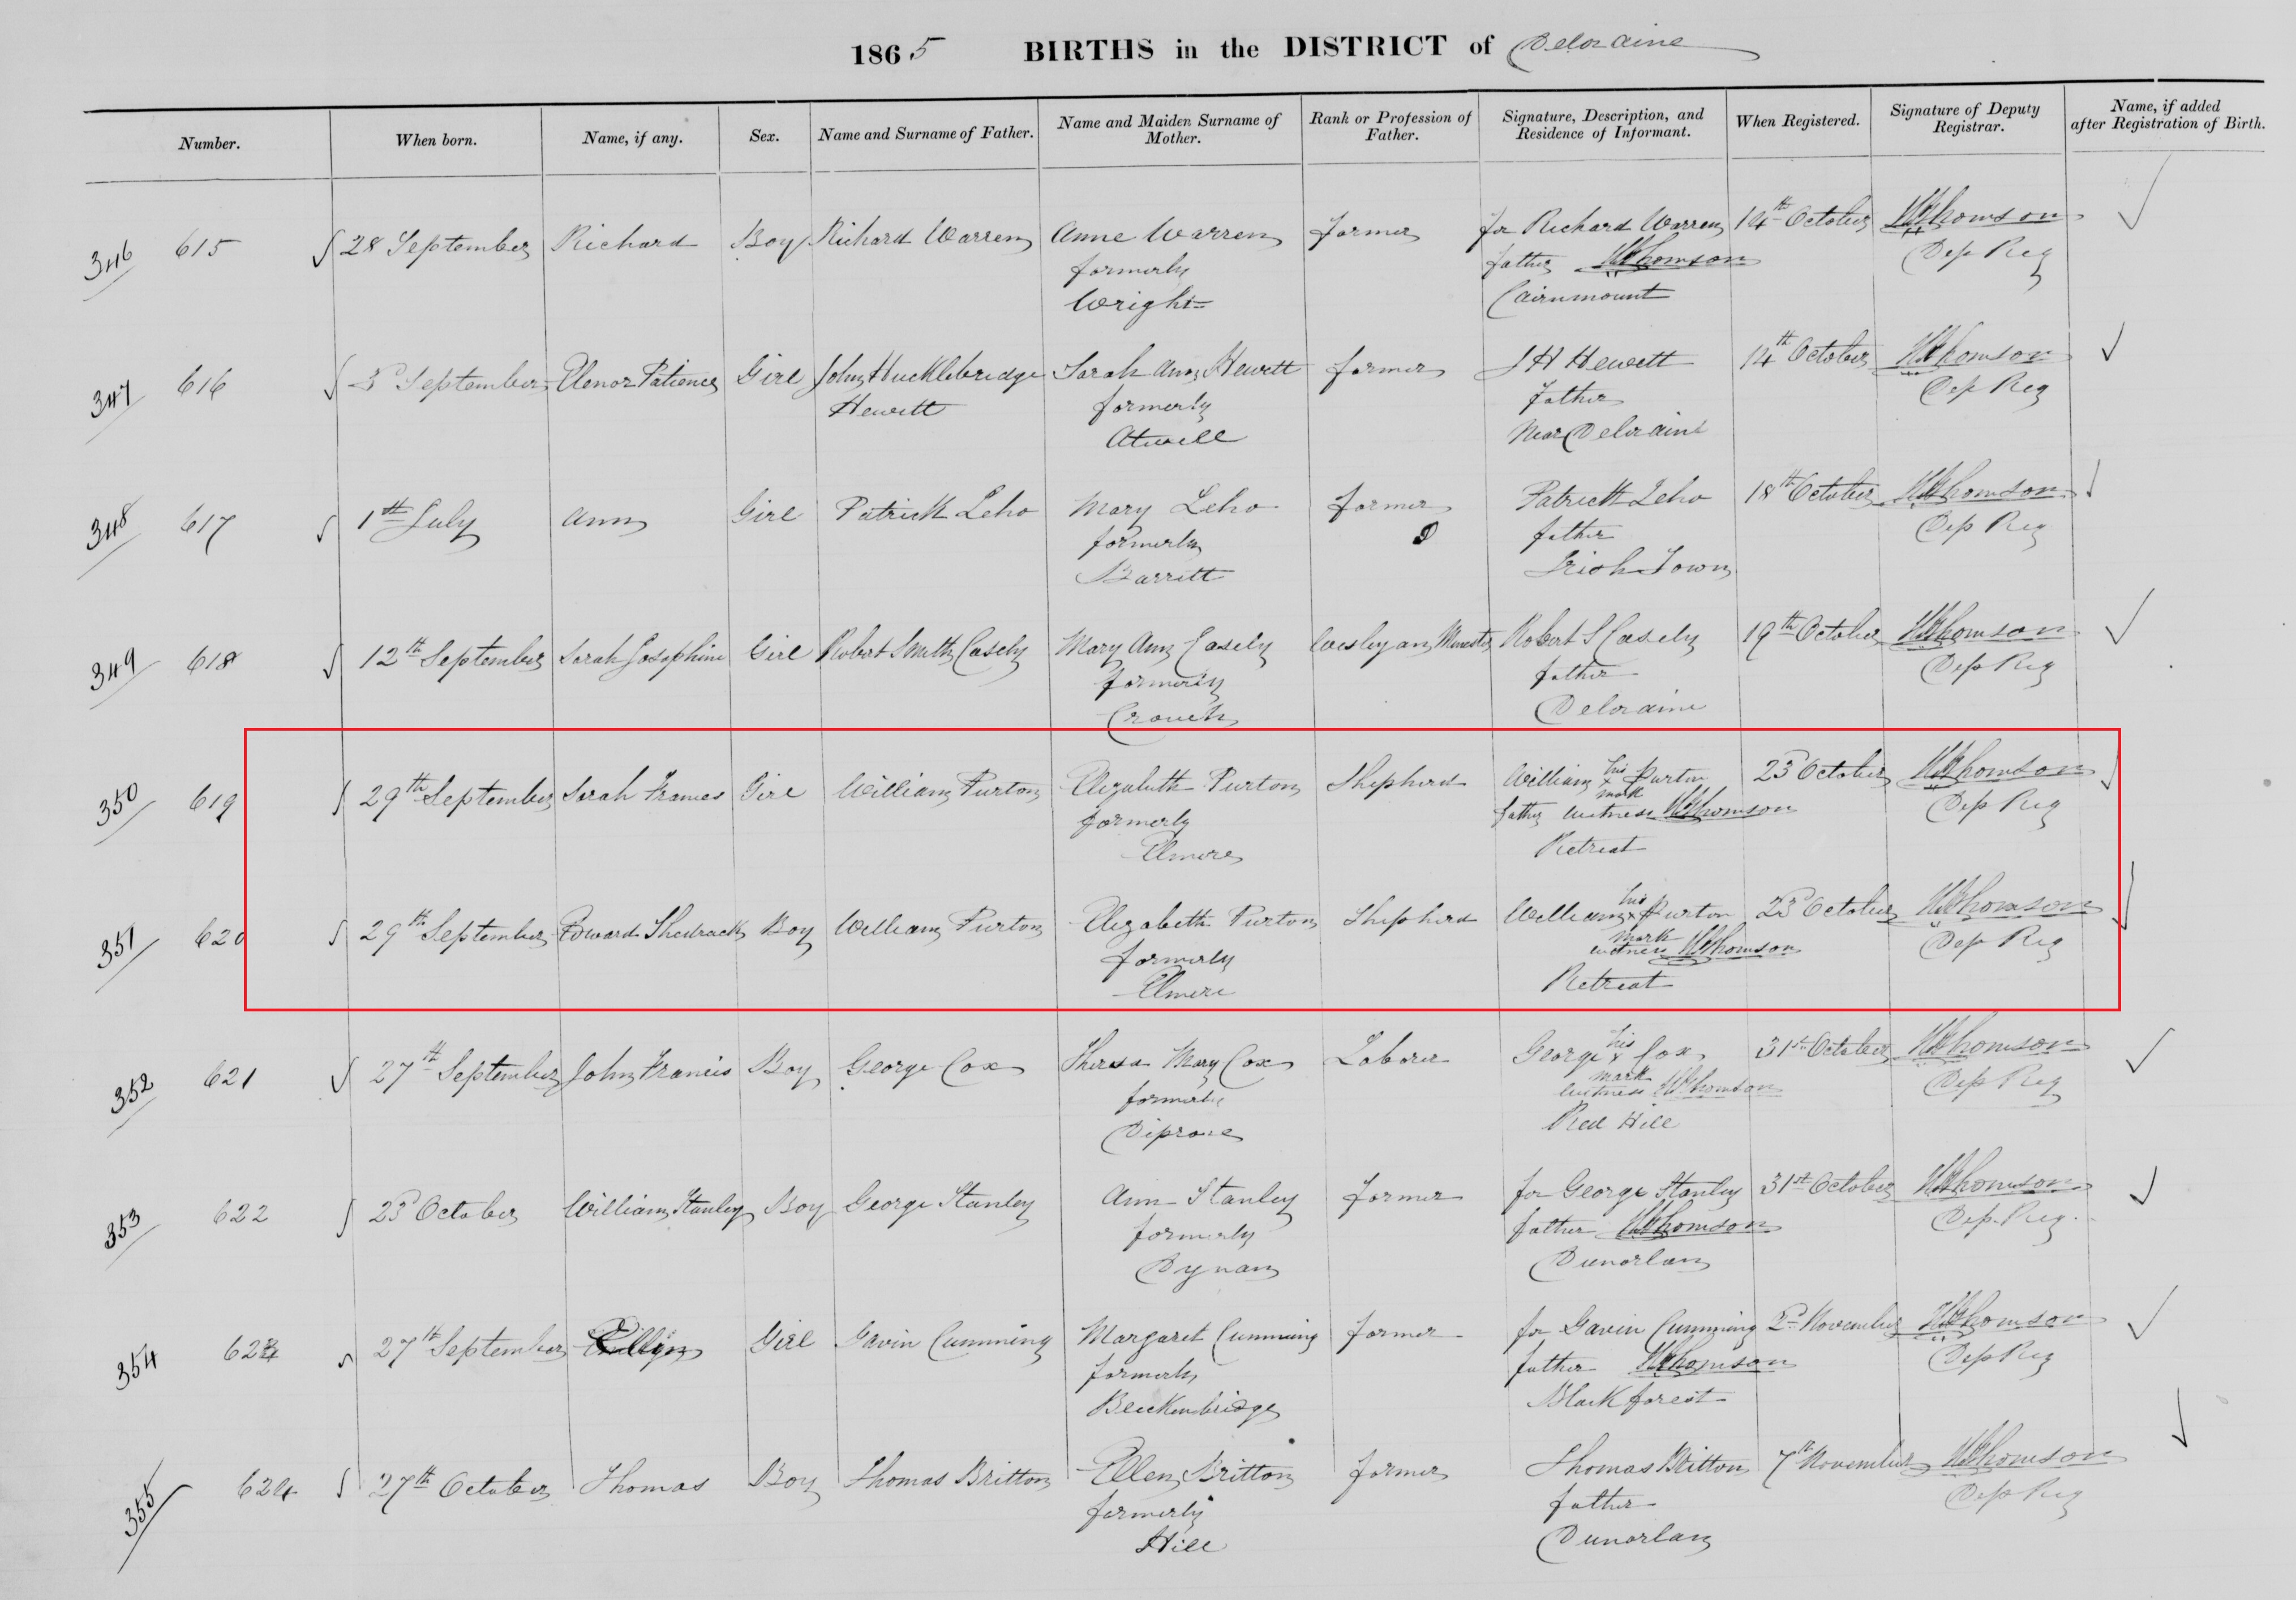 1865 BIRTHS in the DISTRICT of Deloraine
Number. When born. Name, if any. Sex. Name and Surname of Father. Name and Maiden Surname of Mother. Rank or Profession of Father. Signature, Description, and Residence of Informant. When Registered. Signature of Deputy Registrar. Name, if added after Registration of Birth.
346 615 28 September Richard Boy Richard Warren Anne Warren farmer for Richard Warren 14th October Thomson
formerly father Thomson Dep Reg
Wright Cairnmount
347 616 3d September Elenor Patience Girl John Hucklebridge Sarah Ann Hewett farmer J H Hewett 14th October Thomson
Hewett formerly father Dep Reg
Atwell Near Deloraine
348 617 1th July Ann Girl Patrick Leho Mary Leho farmer Patrick Leho 18th October Thomson
formerly father Dep Reg
Barrett Irish Town
349 618 12th September Sarah Josophine Girl Robert Smith Casely Mary Ann Casely Wesleyan Minister Robert S Casely 19th October Thomson
formerly father Dep Reg
Crouch Deloraine
350 619 29th September Sarah Frances Girl William Purton Elizabeth Purton Shepherd William his x mark Purton 23d October Thomson
formerly father witness Thomson Dep Reg
Elmere Retreat
351 620 29th September Edward Shedrack Boy William Purton Elizabeth Purton Shepherd William his x mark Purton 23d October Thomson
formerly witness Thomson Dep Reg
Elmere Retreat
352 621 27th September John Francis Boy George Cox Theresa Mary Cox Laborer George his x mark Cox 31st October Thomson
formerly witness Thomson Dep Reg
Diprose Red Hill
353 622 23d October William Stanley Boy George Stanley Ann Stanley farmer for George Stanley 31st October Thomson
formerly father Thomson Dep Reg.
Dynan Dunorlan
354 623 27th September Girl Gavin Cumming Margaret Cumming farmer for Gavin Cumming 2d November Thomson
formerly father Thomson Dep Reg
Black forest
355 624 27th October Thomas Boy Thomas Britton Ellen Britton farmer Thomas Britton 7th November Thomson
formerly father Dep Reg
Hill Dunorlan